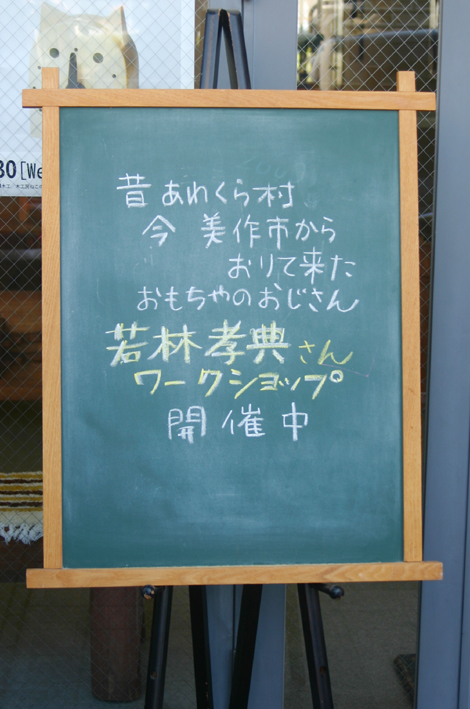 30 [We
昔 あれくら村
今 美作市から
おりて来た
おもちゃのおじさん
若林孝典さん
ワークショップ
開催中